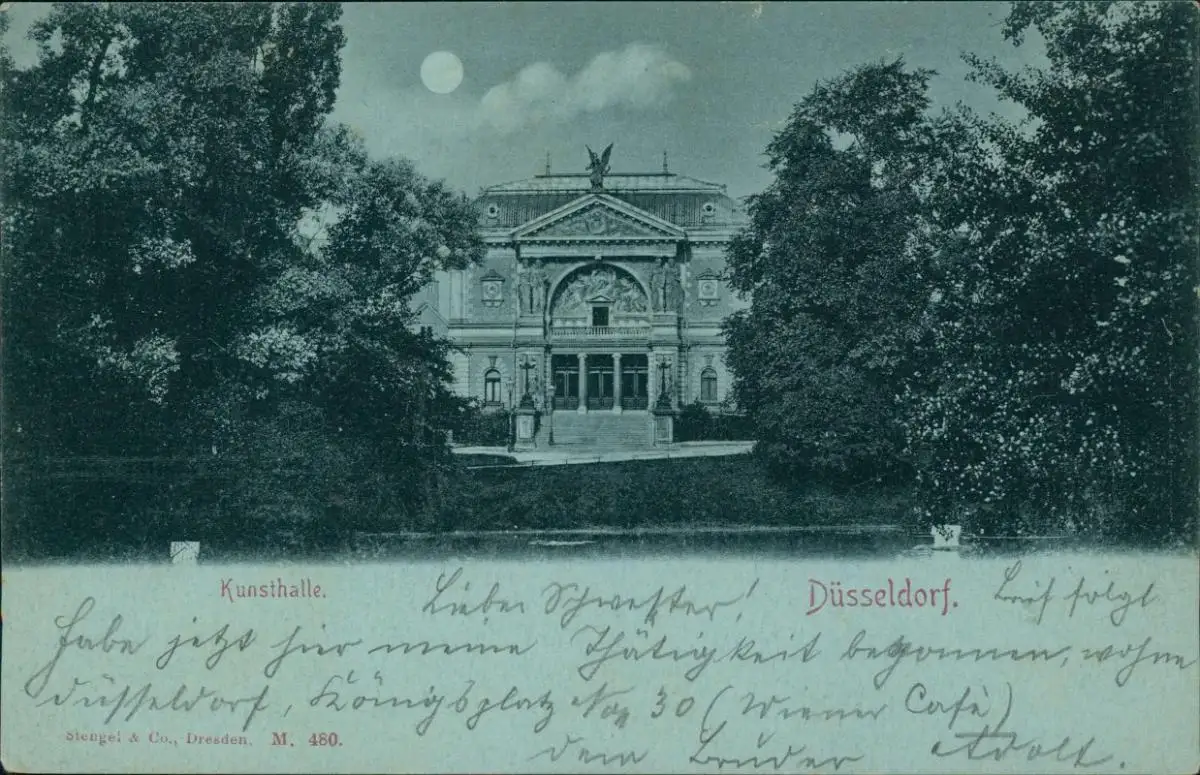 Kunsthalle. Lieber Schwester! Düsseldorf. Brief folgt
habe jetzt hier meine Thätigkeit begonnen, wohne
Düsseldorf, Königsplatz No 30 (Wiener Café)
Stengel & Co., Dresden. M. 480.
dein Bruder Adolf.